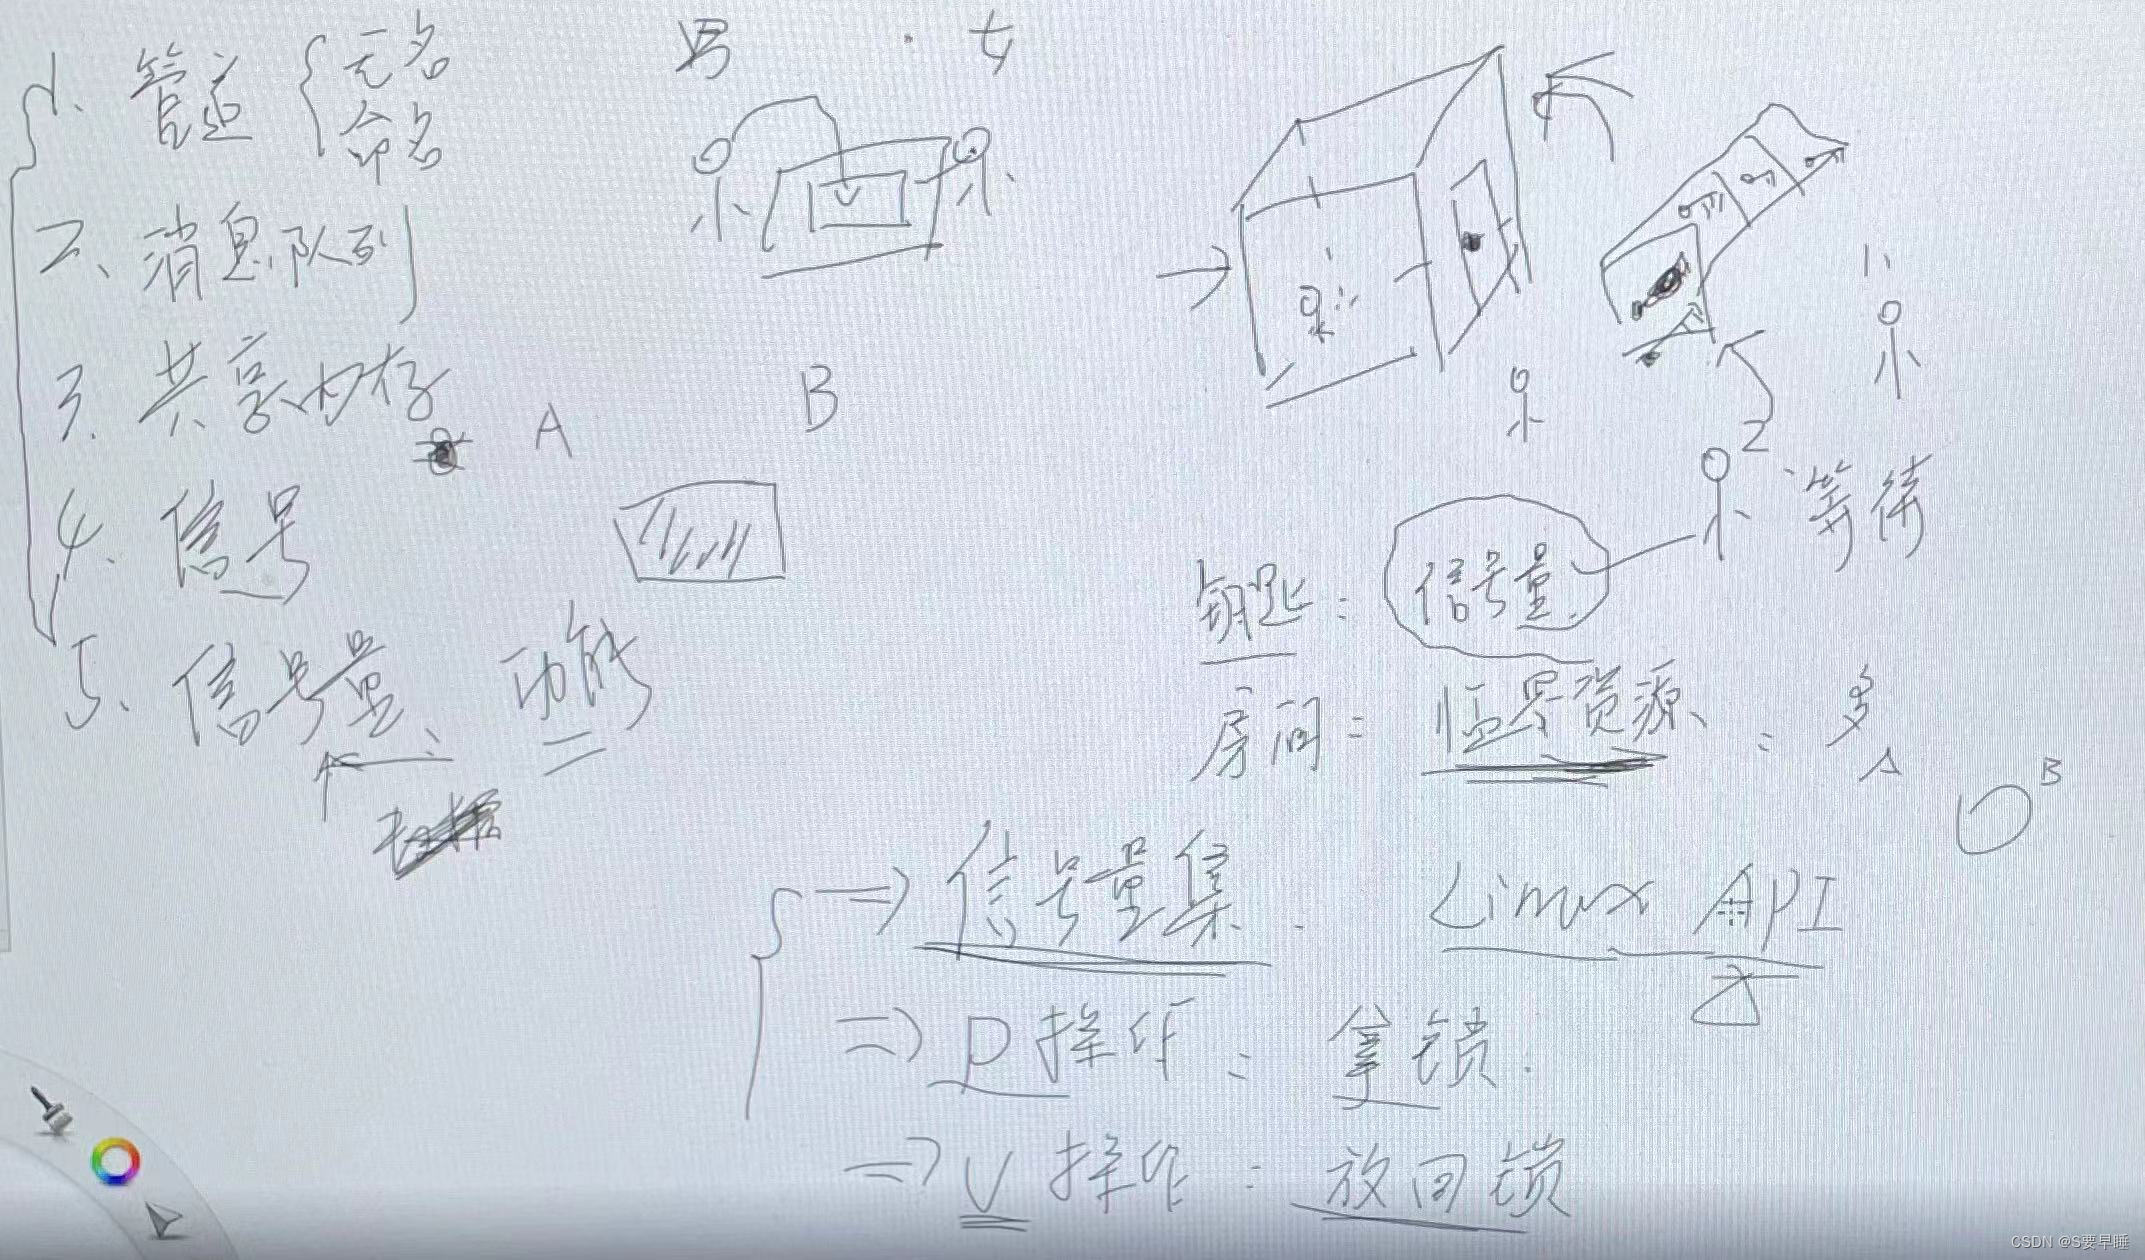 1、管道 { 无名
命名
2、消息队列
3、共享内存
4、信号
5、信号量、功能
男 · 女
A B
1、
2、等待
钥匙：信号量
房间：临界资源、：多
A B
=> 信号量集. Linux API
=> P操作：拿锁.
=> V操作：放回锁
CSDN @S要早睡